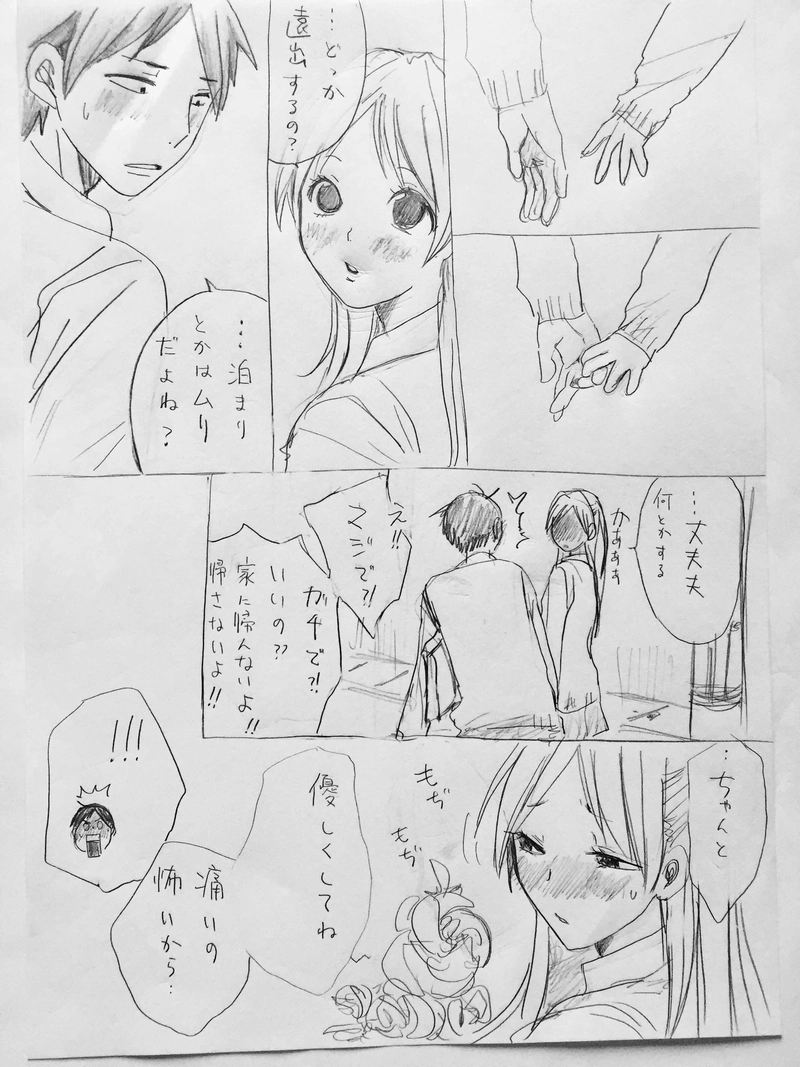 …どっか
遠出するの?
…泊まり
とかはムリ
だよね?
…大丈夫
何とかする
かぁぁぁ
え!!
マジで?!
ガチで?!
いいの??
家に帰んないよ!!
帰さないよ!!
…ちゃんと
もぢ
もぢ
優しくしてね
痛いの
怖いから…
!!!